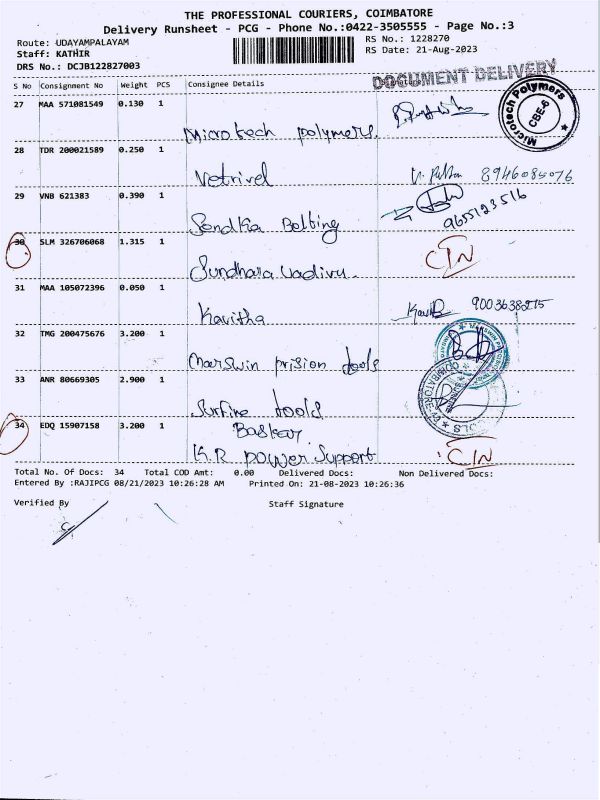 THE PROFESSIONAL COURIERS, COIMBATORE
Delivery Runsheet - PCG - Phone No.:0422-3505555 - Page No.:3
Route: UDAYAMPALAYAM RS No.: 1228270
Staff: KATHIR RS Date: 21-Aug-2023
DRS No.: DCJB122827003
DOCUMENT DELIVERY
S No Consignment No Weight PCS Consignee Details
27 MAA 571081549 0.130 1
Microtech polymers.
Microtech Polymers
CBE-6
28 TDR 200021589 0.250 1
Vetrivel 8946085076
29 VNB 621383 0.390 1
Sendka Belting 9655123516
30 SLM 326706068 1.315 1
Sundhara vadivu. C/N
31 MAA 105072396 0.050 1
Kavitha 9003638215
32 TMG 200475676 3.200 1
Marswin prision tools
33 ANR 80669305 2.900 1
Surfine tools
34 EDQ 15907158 3.200 1
Baskar
K.R power Support C/N
Total No. Of Docs: 34 Total COD Amt: 0.00 Delivered Docs: Non Delivered Docs:
Entered By :RAJIPCG 08/21/2023 10:26:28 AM Printed On: 21-08-2023 10:26:36
Verified By Staff Signature